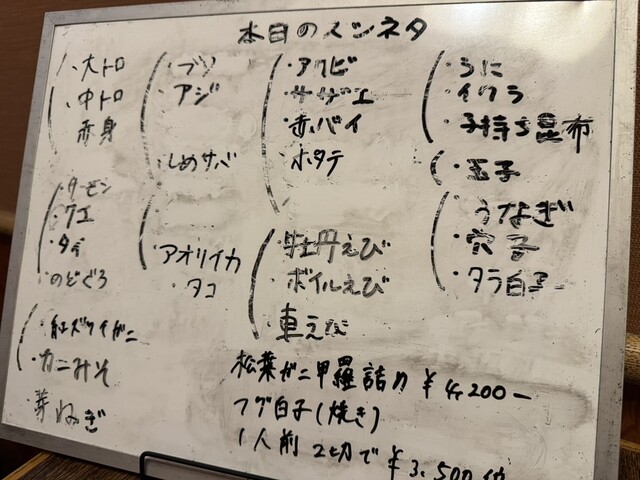 本日のスシネタ
・大トロ
・中トロ
赤身
・サーモン
・クエ
・タイ
・のどぐろ
・紅ズワイガニ
・カニみそ
・芽ねぎ
・ブリ
・アジ
・しめサバ
・アオリイカ
・タコ
・アワビ
・サザエ
・赤バイ
・ホタテ
・牡丹えび
・ボイルえび
・車えび
・うに
・イクラ
・子持ち昆布
・玉子
・うなぎ
・穴子
・タラ白子
松葉ガニ甲羅詰め ¥4,200-
フグ白子(焼き)
1人前 2切で ¥3,500